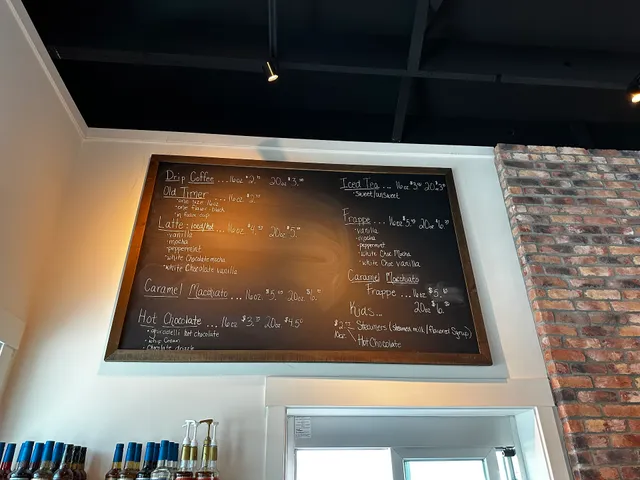 Drip Coffee ... 16oz $2. 20oz $3.
Old Timer ... 16oz
· one size 16oz
Latte: iced/hot ... 16oz $4. 20oz $5.
· vanilla
· mocha
· peppermint
· white Chocolate mocha
· white Chocolate vanilla
Caramel Macchiato ... 16oz $5. 20oz $6.
Hot Chocolate ... 16oz $3. 20oz $4.50
hot chocolate
· whip cream
· chocolate drizzle
Iced Tea ... 16oz 20
· sweet/unsweet
Frappe ... 16oz $5. 20oz $6.
· vanilla
· mocha
· peppermint
· white Choc Mocha
· white Choc vanilla
Caramel Macchiato
Frappe ... 16oz $5.
20oz $6.
Kids...
Steamers (steamed milk / flavored syrup)
Hot Chocolate